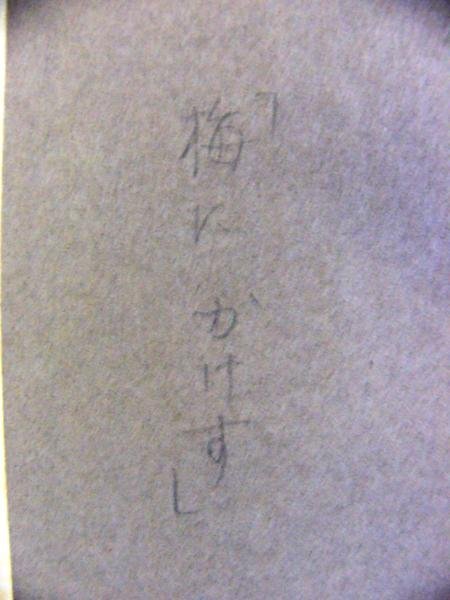 「梅にかけす」